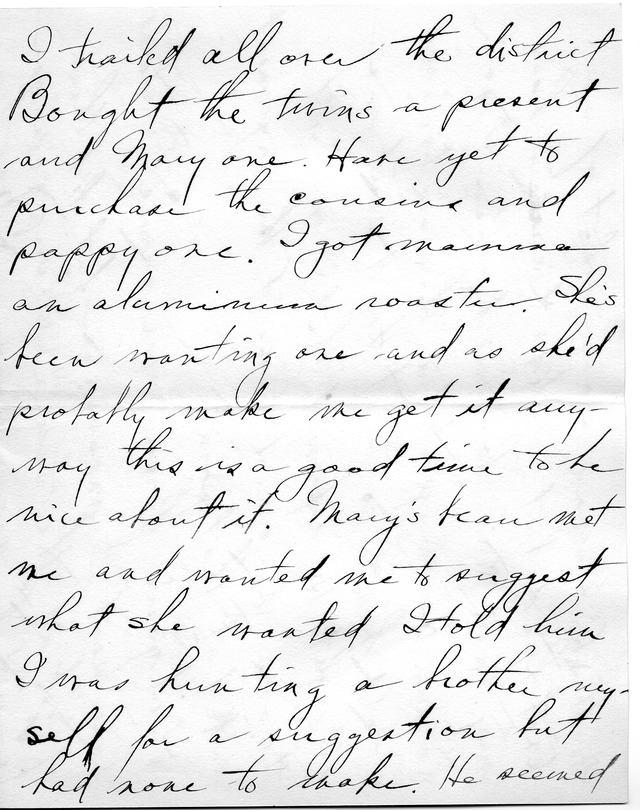 I trailed all over the district
Bought the twins a present
and Mary one. Have yet to
purchase the cousins and
pappy one. I got mamma
an aluminum roaster. She's
been wanting one and as she'd
probably make me get it any-
way this is a good time to be
nice about it. Mary's beau met
me and wanted me to suggest
what she wanted I told him
I was hunting a brother my-
self for a suggestion but
had none to make. He seemed